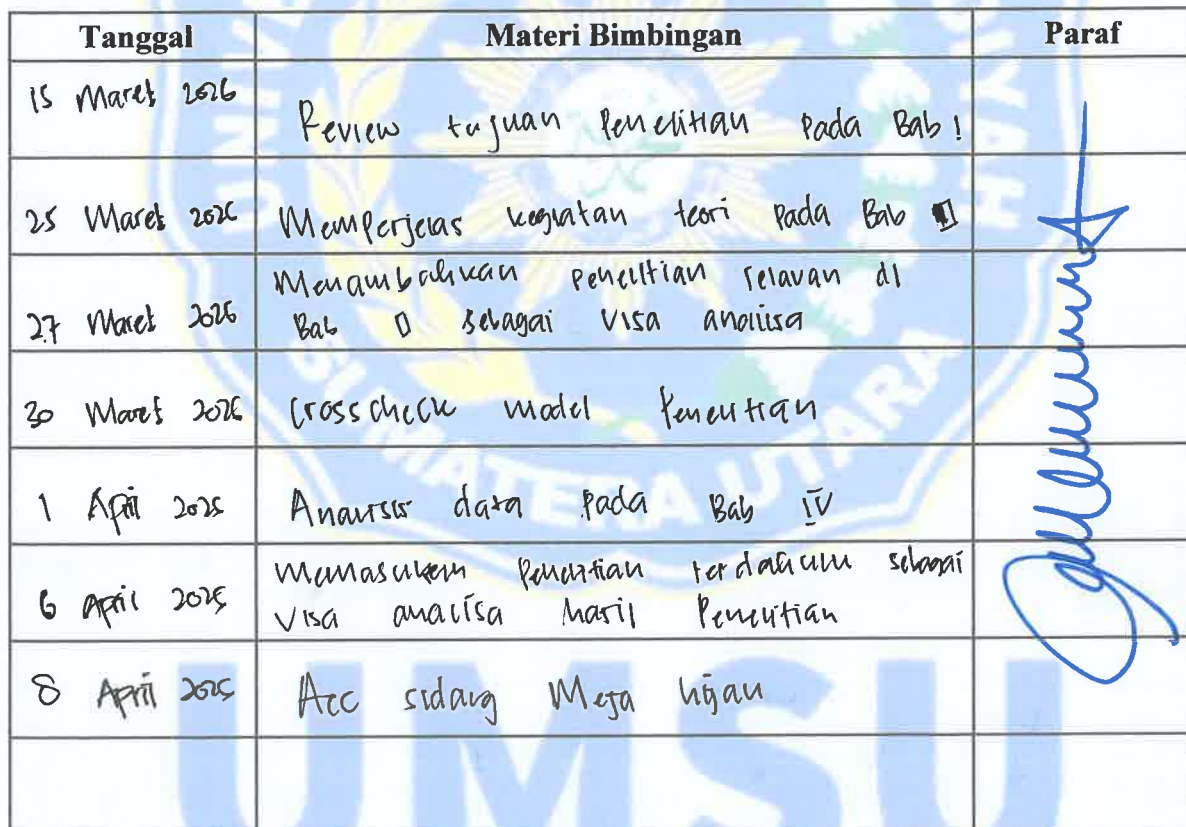 Tanggal Materi Bimbingan Paraf
15 Maret 2026
Review tujuan Penelitian Pada Bab I
25 Maret 2026 Memperjelas keguatan teori Pada Bab II
Menambahkan Penelitian relavan di
27 Maret 2026 Bab II sebagai Visa analisa
30 Maret 2026 Crosscheck model Penelitian
1 April 2025 Analisis data Pada Bab IV
Memasukkan Penelitian terdahulu sebagai
6 April 2025 Visa analisa hasil Penelitian
8 April 2025 Acc sidang Meja hijau
UNIV
IYAH
SUMATERA UTARA
UMSU